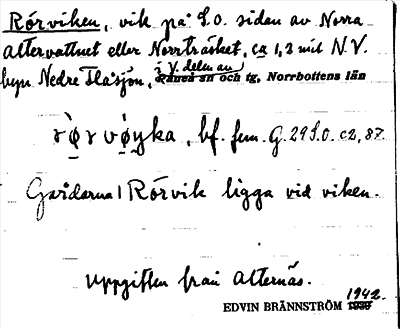 Rörviken, vik på S.O. sidan av Norra
Altervattnet eller Norrträsket, ca 1,3 mil N.V.
byn Nedre Flåsjön, i V. delen av Råneå sn och tg, Norrbottens län
bf. fem. G. 29 S.O. c2, 87.
Gårdarna i Rörvik ligga vid viken.
Uppgiften från Alternäs.
EDVIN BRÄNNSTRÖM 1942. 1939